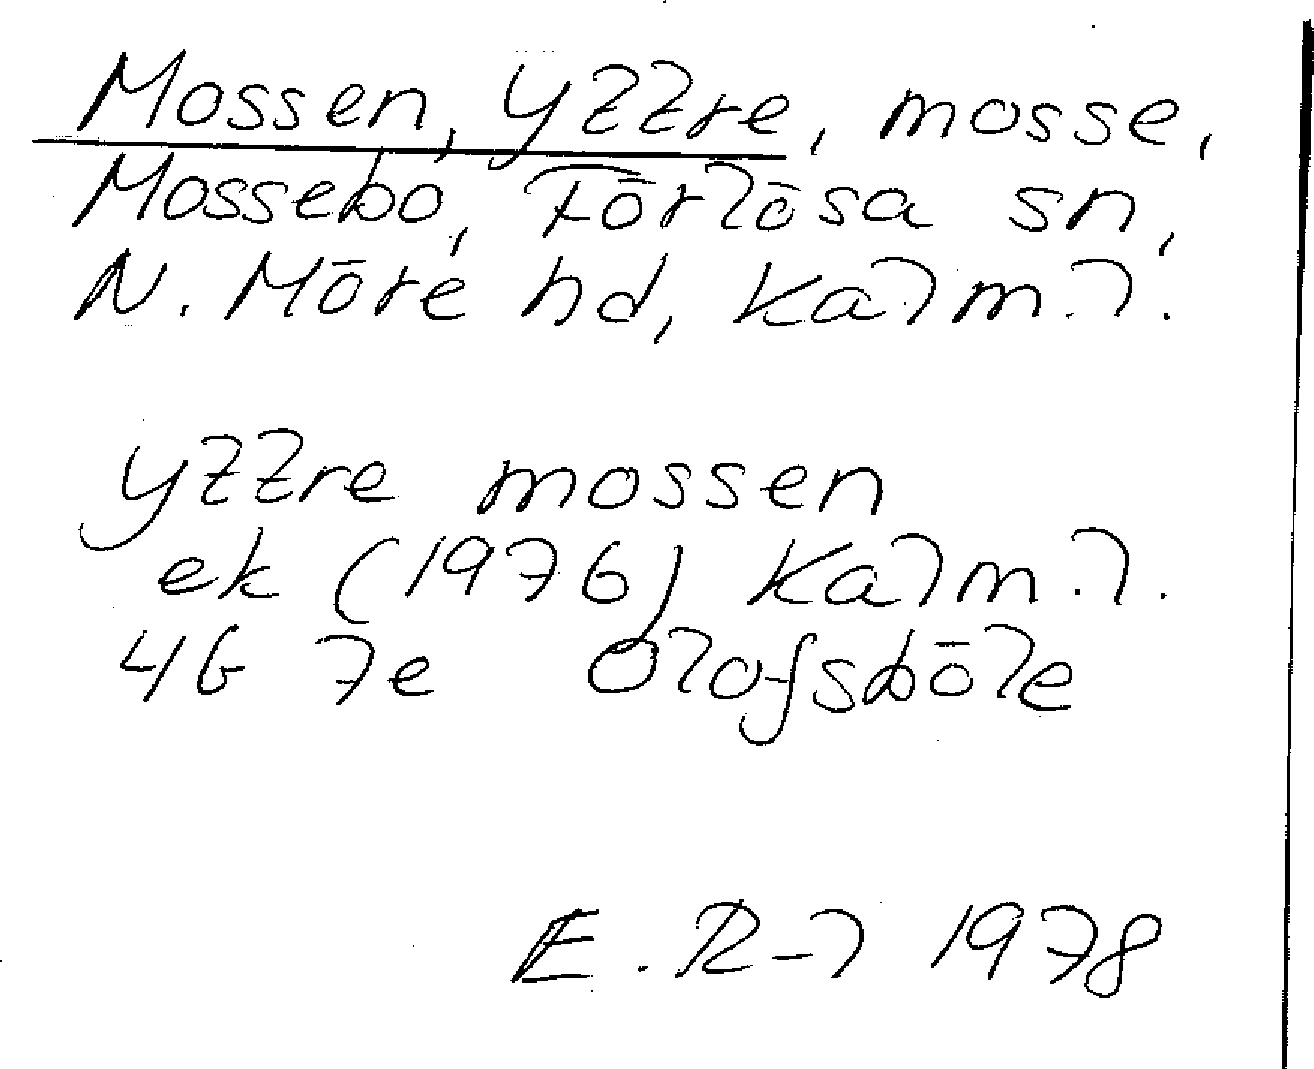 Mossen, Yttre, mosse,
Mossebo, Förlösa sn,
N. Möre hd, Kalm.l.
yttre mossen
ek (1976) Kalm.l.
4G 7e Olofsböle
E. R-l 1978